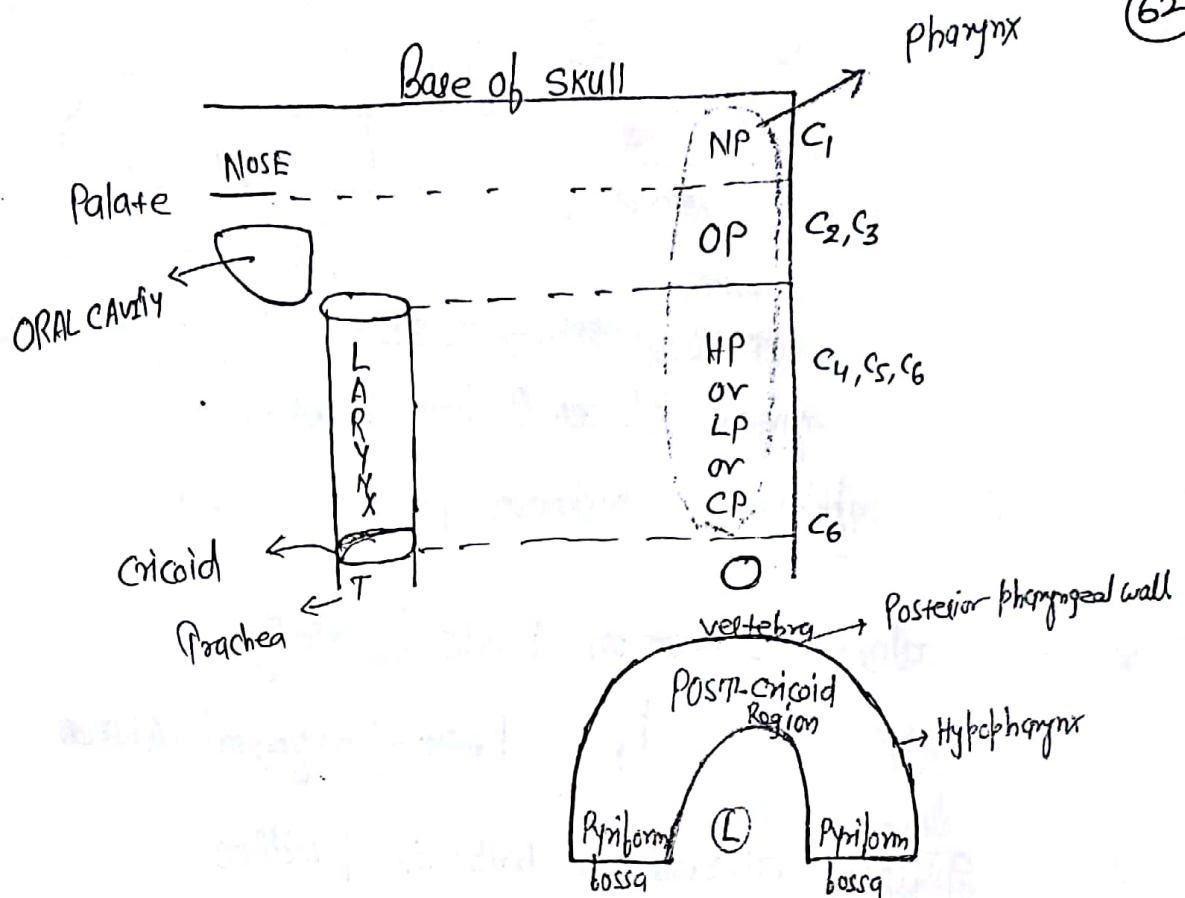 62
Pharynx
Base of SKULL
NP
C1
NOSE
Palate
OP
C2, C3
ORAL CAVITY
LARYNX
HP
or
LP
or
CP
C4, C5, C6
C6
Cricoid
T
Trachea
vertebra
Posterior pharyngeal wall
POST-cricoid
Region
Hypopharynx
Pyriform
fossa
L
Pyriform
fossa